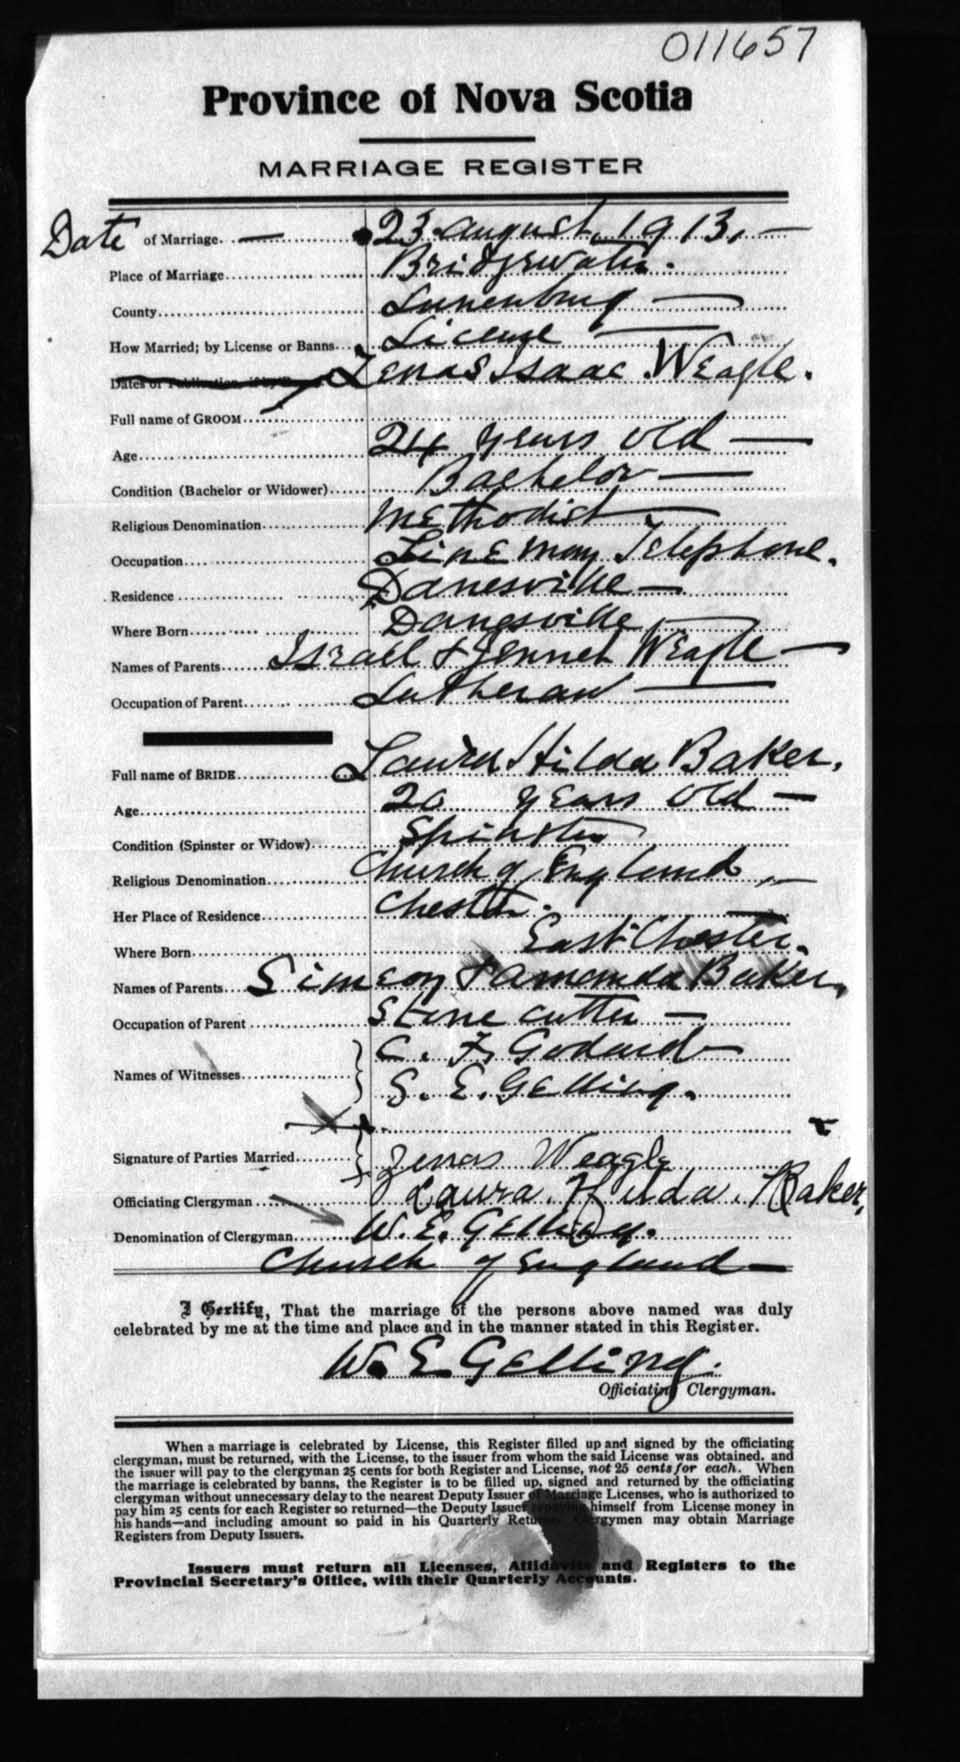 011657
Province of Nova Scotia
MARRIAGE REGISTER
Date of Marriage. 23 august, 1913,
Place of Marriage Bridgewater.
County Lunenburg
How Married; by License or Banns License
Dates of Publication, if by Zenas Isaac Weagle.
Full name of GROOM
Age 24 years old
Condition (Bachelor or Widower) Bachelor
Religious Denomination Methodist
Occupation Lineman Telephone.
Residence Danesville
Where Born Danesville
Names of Parents Israel & Jennet Weagle
Occupation of Parent Lutheran
Full name of BRIDE Laura Hilda Baker,
Age 20 years old
Condition (Spinster or Widow) Spinster
Religious Denomination Church of England,
Her Place of Residence Chester.
Where Born East Chester.
Names of Parents Simeon & Amanda Baker,
Occupation of Parent Stone cutter
Names of Witnesses C. F. Godard
S. E. Gelling.
Signature of Parties Married Zenas Weagle
Officiating Clergyman Laura. Hilda. Baker,
Denomination of Clergyman W. E. Gelling.
Church of England
I Certify, That the marriage of the persons above named was duly
celebrated by me at the time and place and in the manner stated in this Register.
W. E. Gelling.
Officiating Clergyman.
When a marriage is celebrated by License, this Register filled up and signed by the officiating
clergyman, must be returned, with the License, to the issuer from whom the said License was obtained, and
the issuer will pay to the clergyman 25 cents for both Register and License, not 25 cents for each. When
the marriage is celebrated by banns, the Register is to be filled up, signed and returned by the officiating
clergyman without unnecessary delay to the nearest Deputy Issuer of Marriage Licenses, who is authorized to
pay him 25 cents for each Register so returned—the Deputy Issuer repaying himself from License money in
his hands—and including amount so paid in his Quarterly Return. Clergymen may obtain Marriage
Registers from Deputy Issuers.
Issuers must return all Licenses, Affidavits and Registers to the
Provincial Secretary's Office, with their Quarterly Accounts.